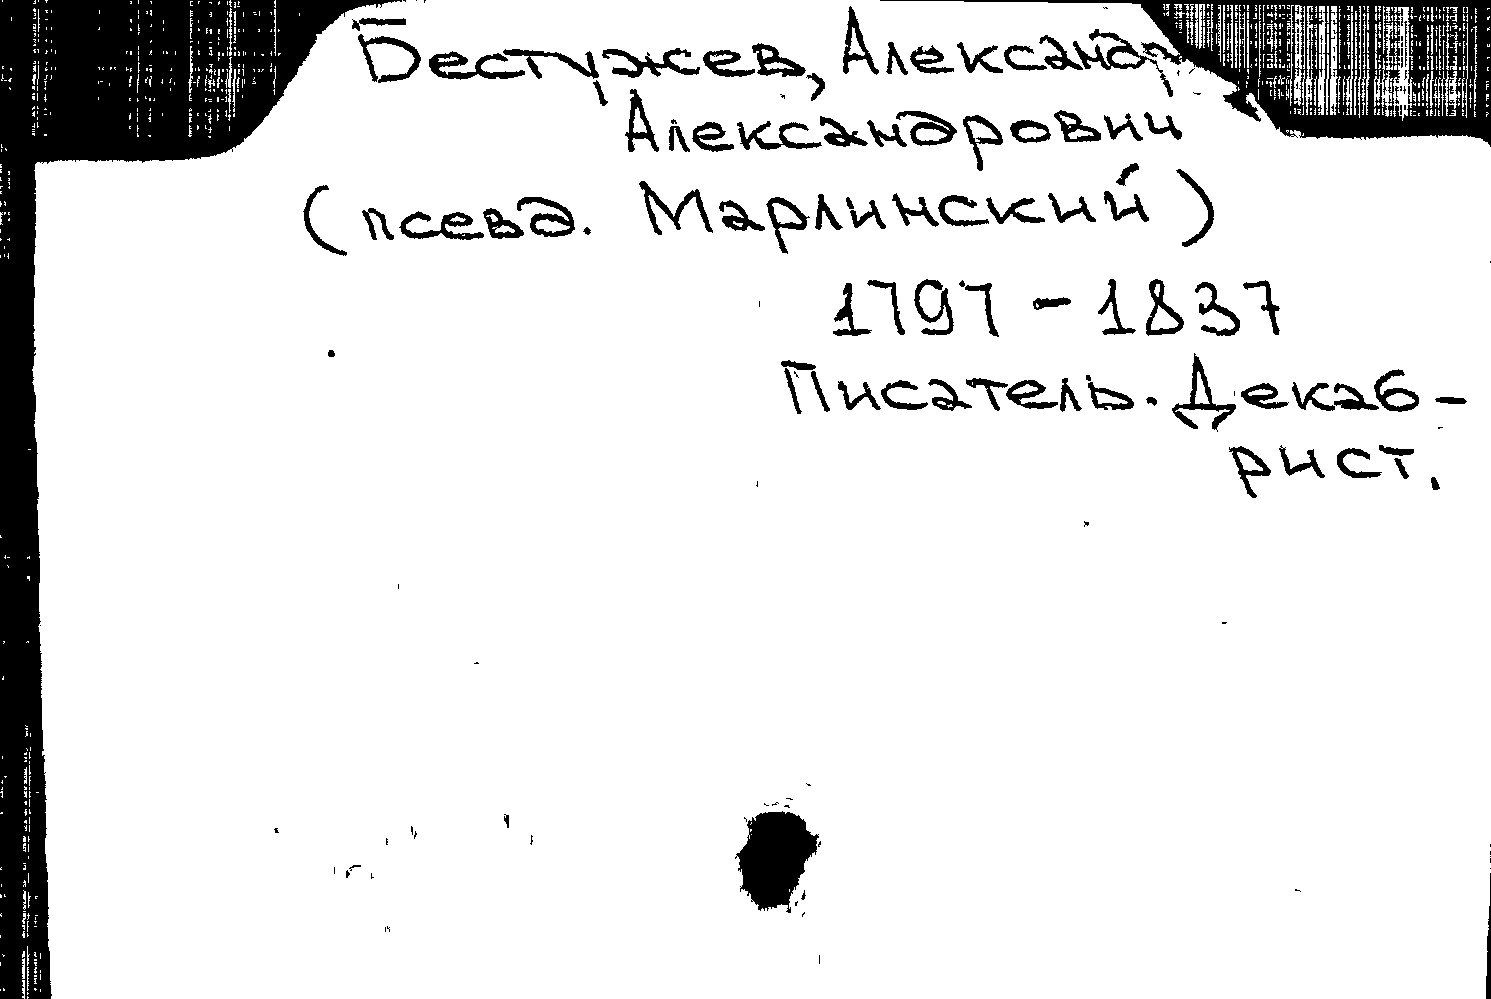 Бестужев, Александр
Александрович
(псевд. Марлинский)
1797-1837
Писатель. Декаб-
рист.